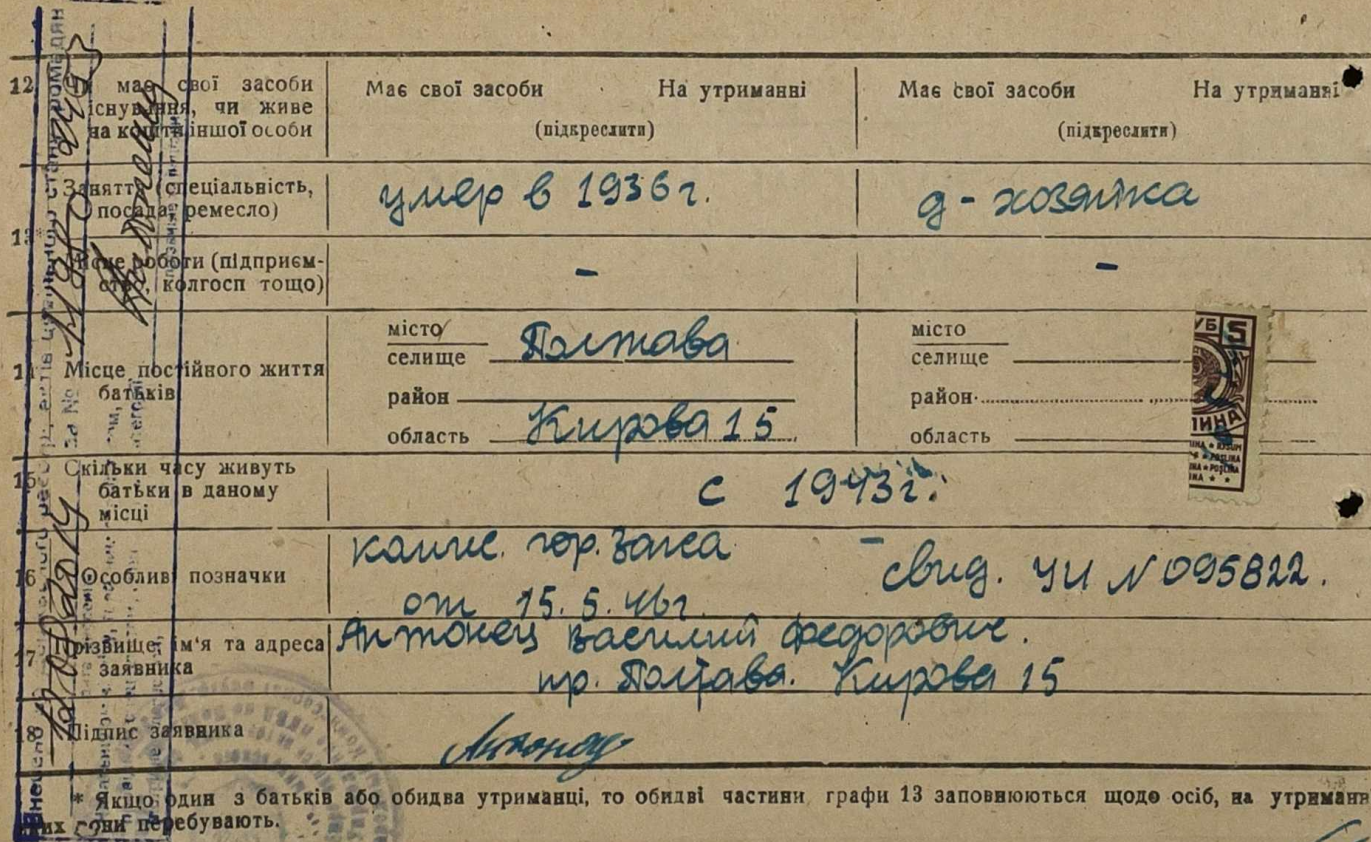 12 Чи має свої засоби існування, чи живе на кошти іншої особи
Має свої засоби На утриманні
(підкреслити)
Має свої засоби На утриманні
(підкреслити)
13*
Заняття (спеціальність, посада, ремесло)
умер в 1936 г.
д-хозяйка
Місце роботи (підприємство, колгосп тощо)
-
-
14 Місце постійного життя батьків
місто
селище Полтава
район
область Кирова 15
місто
селище
район
область
15 Скільки часу живуть батьки в даному місці
с 1943 г.
16 Особливі позначки
комис. гор. Загса
от 15.5.46 г.
- свид. УИ № 095822.
17 Прізвище, ім'я та адреса заявника
Антонец Василий Федорович.
пр. Полтава. Кирова 15
18 Підпис заявника
* Якщо один з батьків або обидва утриманці, то обидві частини графи 13 заповнюються щодо осіб, на утриманні
яких вони перебувають.
УБ 5